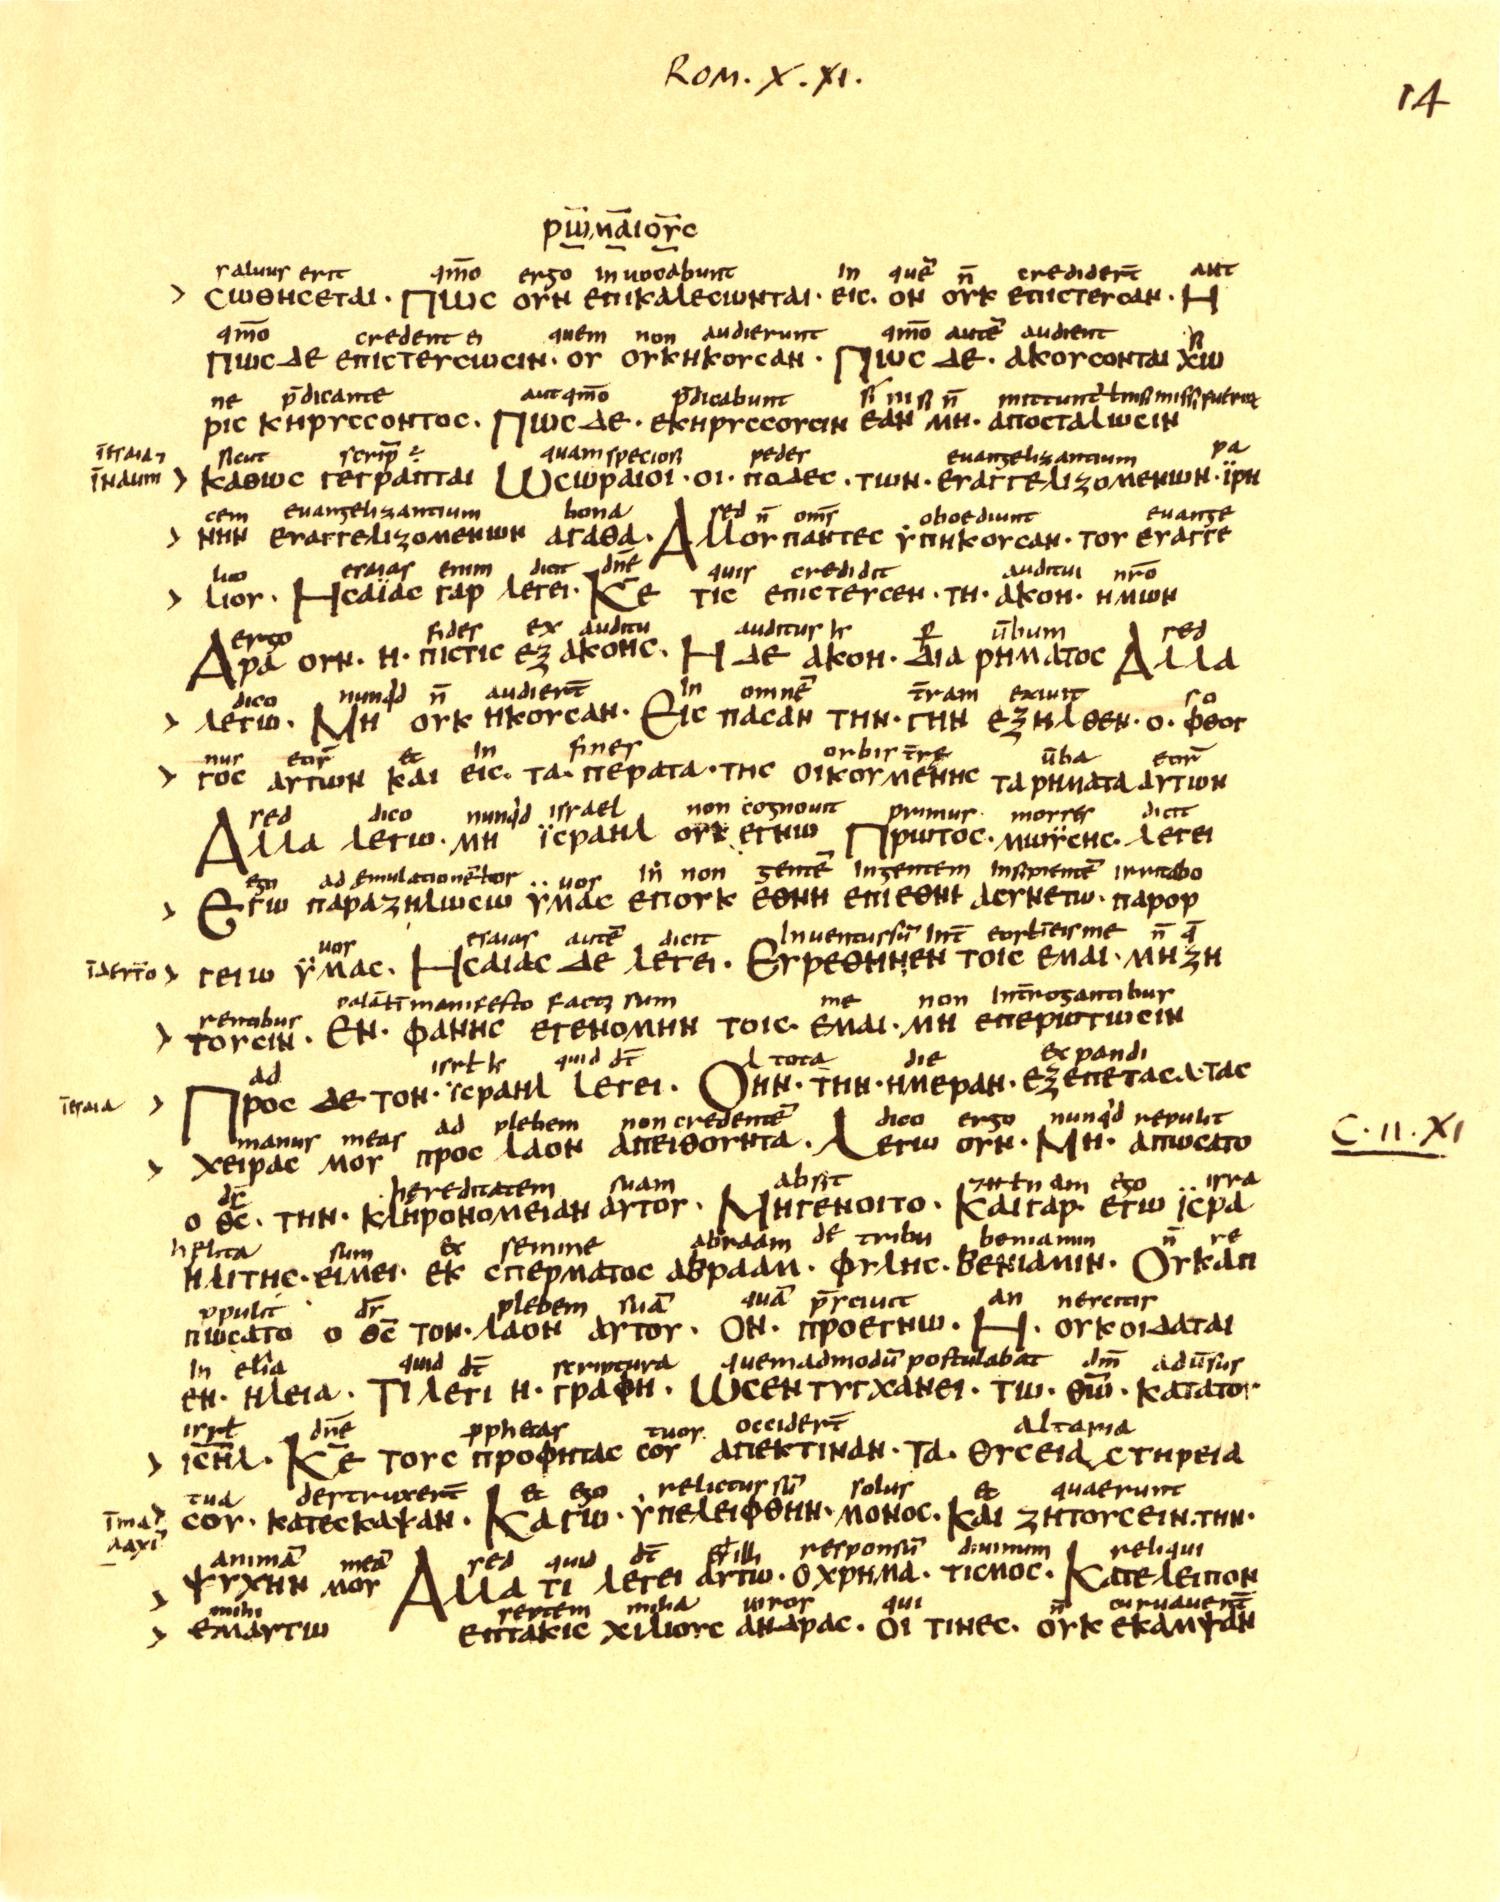 Rom. X. XI.
14
ρω̅μα̅ιου̅ς
saluus erit qm̅o ergo inuocabunt in que̅ n̅ credider̅t aut
> σωθησεται · Πως ουν επικαλεσωνται · εις · ον ουκ επιστευσαν · Η
qm̅o credent ei quem non audierunt qm̅o aute̅ audient
πως δε επιστευσωσιν · ου ουκηκουσαν · Πως δε · ακουσονται χω
ne p̅dicante aut qm̅o p̅dicabunt si nisi n̅ mittunt̅
ρις κηρυσσοντος · Πως δε · εκηρυσσουσιν εαν μη · αποσταλωσιν
sicut scrip̅ quam speciosi pedes euangelizantium pa
> καθως γεγραπται Ωσωραιοι · οι · ποδες · των · ευαγγελιζομενων · ϊρη
cem euangelizantium bona sed n̅ om̅s oboediunt euange
> νην ευαγγελιζομενων αγαθα · Αλλουπαντες ϋπηκουσαν · του ευαγγε
lio esaias enim dicit dn̅e quis credidit auditui nr̅o
> λιου · Ησαϊας γαρ λεγει · Κ̅ε τις επιστευσεν · τη · ακοη · ημων
ergo fides ex auditu auditus u̅bum sed
Αρα ουν · η · πιστις εξ ακοης · Η δε ακοη · δια ρηματος Αλλα
dico nunq̅d n̅ audier̅t in omne̅ t̅ram exiuit so
> λεγω · Μη ουκ ηκουσαν · Εις πασαν την · γην εξηλθεν · ο · φθογ
nus eor̅ et in fines orbis t̅re u̅ba eor̅
> γος αυτων και εις · τα · περατα · της οικουμενης τα ρηματα αυτων
sed dico nunq̅d israel non cognouit primus moyses dicit
Αλλα λεγω · μη ϊσραηλ ουκ εγνω Πρωτος · μωϋσης · λεγει
ego ad emulatione̅ uos in̅ non gente̅ in gentem insipiente̅ irritabo
> Εγω παραζηλωσω ϋμας επουκ εθνη επιεθνι ασυνετω · παρορ
uos esaias aute̅ dicit inuentus su̅ n̅ q̅
> γειω ϋμας · Ησαιας δε λεγει · Ευρεθηνεν τοις εμαι · μη ζη
rentibus manifesto sum me non int̅rogantibus
> τουσιν · Εν · φανης εγενομην τοις · εμαι · μη επερωτωσιν
ad quid d̅t tota die expandi
> Προς δε τον · ϊσραηλ λεγει · Οην · την · ημεραν · εξεπετασα · τας
manus meas ad plebem non credente̅ dico ergo nunq̅d repulit
> χειρας μου προς λαον απειθουντα · Λεγω ουν · Μη · απωσατο
C · II · XI
d̅s hereditatem suam absit nam ego isra
ο θ̅ς · την · κληρονομειαν αυτου · Μηγενοιτο · Και γαρ · εγω ϊσρα
helita sum ex semine abraam de tribu beniamin n̅ re
ηλιτης · ειμει · εκ σπερματος αβρααμ · φυλης · βενιαμιν · Ουκαπ
ppulit d̅s plebem sua̅ qua̅ p̅sciuit an nescitis
πωσατο ο θ̅ς τον · λαον αυτου · ον · προεγνω · Η · ουκοιδαται
in elia quid d̅t scriptura quemadmodu̅ postulabat dm̅ adu̅sus
εν · ηλεια · Τι λεγι η · γραφη · ωσεντυγχανει · τω · θω̅ · κατατου
isrl̅ dn̅e pphetas tuos occider̅t altaria
> ισ̅ηλ · Κ̅ε τους προφητας σου απεκτιναν · τα · θυσειαστηρεια
tua destruxer̅t et ego relictus su̅ solus et quaerunt
> σου · κατεσκαψαν · Καγω · ϋπελειφθην · μονος · και ζητουσειν · την ·
anima̅ mea̅ sed quid d̅t illi responsu̅ diuinum reliqui
> ψυχην μου Αλλα τι λεγει αυτω · οχρημα · τισμος · Κατελειπον
mihi septem milia uiros qui n̅ curuauer̅t
> εμαυτω επτακις χιλιους ανδρας · οι τινες · ουκ εκαμψαν